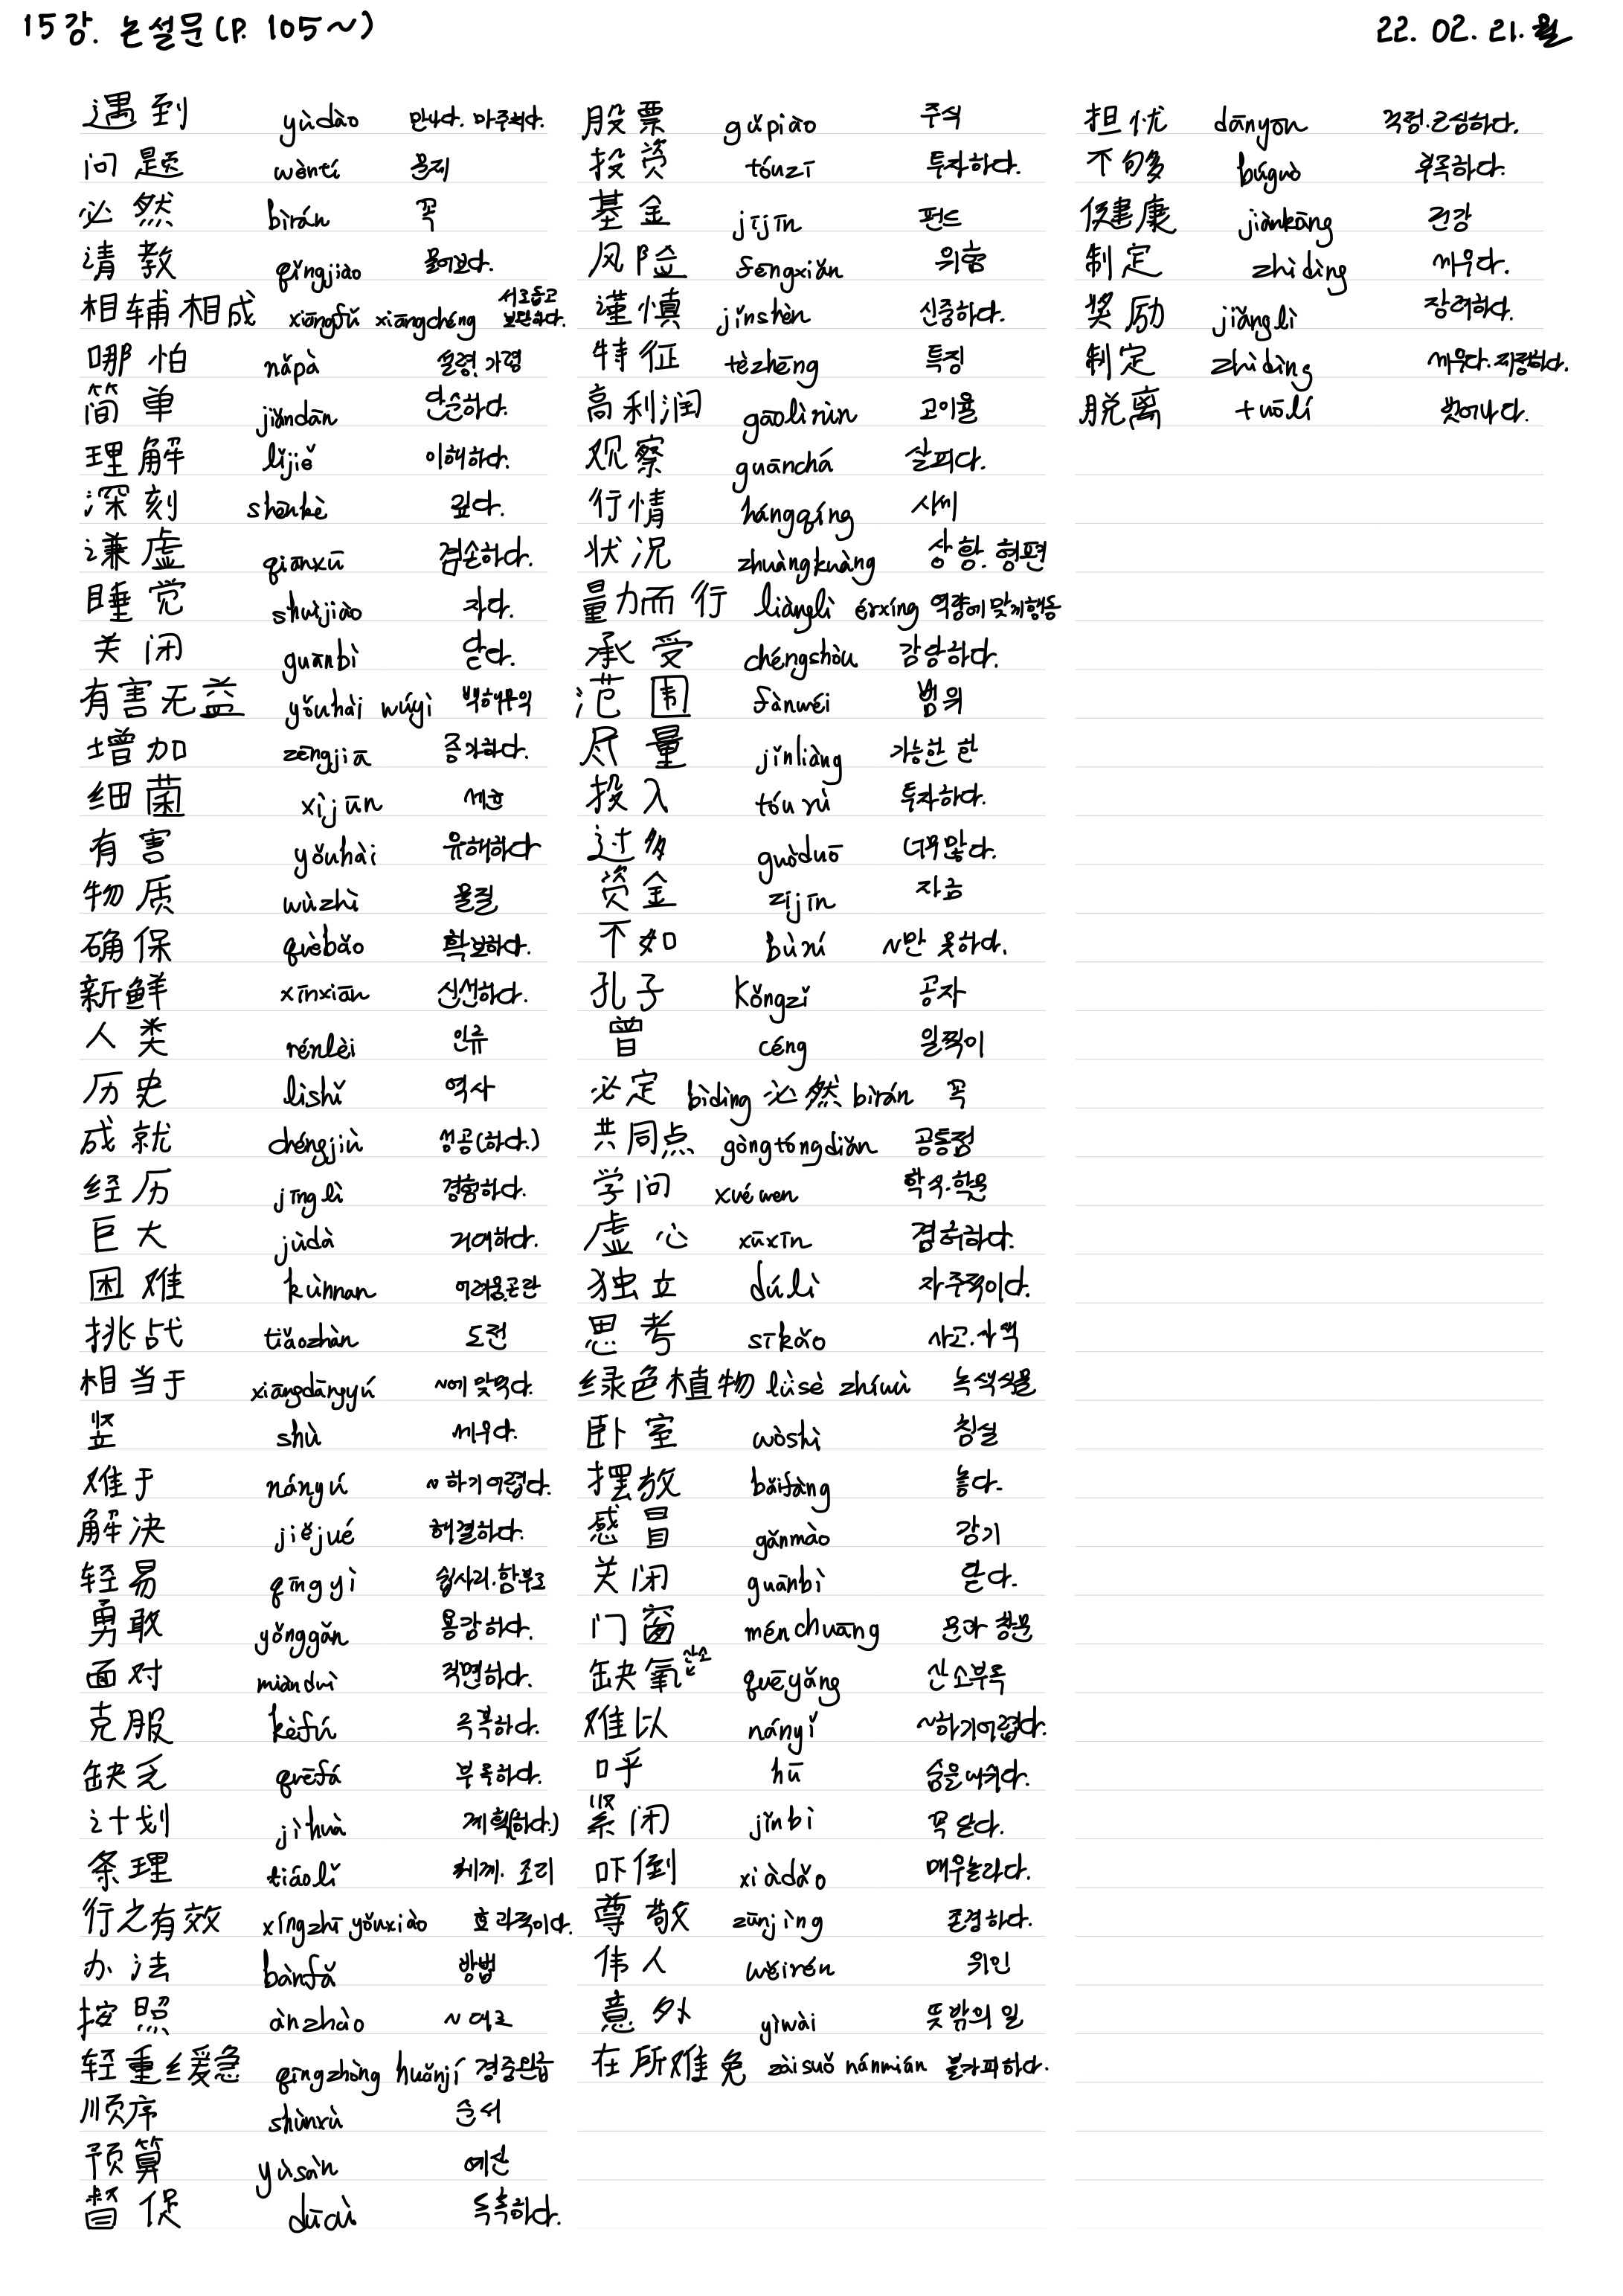 15강. 논설문(P. 105~)
22. 02. 21. 월
遇到 yùdào 만나다. 마주치다.
问题 wèntí 문제
必然 bìrán 꼭
请教 qǐngjiào 물어보다.
相辅相成 xiāngfǔ xiāngchéng 서로돕고 보완하다.
哪怕 nǎpà 설령. 가령
简单 jiǎndān 단순하다.
理解 lǐjiě 이해하다.
深刻 shēnkè 깊다.
谦虚 qiānxū 겸손하다.
睡觉 shuìjiào 자다.
关闭 guānbì 닫다.
有害无益 yǒuhài wúyì 백해무익
增加 zēngjiā 증가하다.
细菌 xìjūn 세균
有害 yǒuhài 유해하다
物质 wùzhì 물질
确保 quèbǎo 확보하다.
新鲜 xīnxiān 신선하다.
人类 rénlèi 인류
历史 lìshǐ 역사
成就 chéngjiù 성공(하다.)
经历 jīnglì 경험하다.
巨大 jùdà 거대하다.
困难 kùnnan 어려움.곤란
挑战 tiǎozhàn 도전
相当于 xiāngdāngyú ~에 맞먹다.
竖 shù 세우다.
难于 nányú ~하기어렵다.
解决 jiějué 해결하다.
轻易 qīngyì 쉽사리.함부로
勇敢 yǒnggǎn 용감하다.
面对 miànduì 직면하다.
克服 kèfú 극복하다.
缺乏 quēfá 부족하다.
计划 jìhuà 계획(하다.)
条理 tiáolǐ 체계. 조리
行之有效 xíngzhī yǒuxiào 효과적이다.
办法 bànfǎ 방법
按照 ànzhào ~대로
轻重缓急 qīngzhòng huǎnjí 경중완급
顺序 shùnxù 순서
预算 yùsàn 예산
督促 dūcù 독촉하다.
股票 gǔpiào 주식
投资 tóuzī 투자하다.
基金 jījīn 펀드
风险 fēngxiǎn 위험
谨慎 jǐnshèn 신중하다.
特征 tèzhēng 특징
高利润 gāolìrùn 고이율
观察 guānchá 살피다.
行情 hángqíng 시세
状况 zhuàngkuàng 상황. 형편
量力而行 liànglì érxíng 역량에 맞게행동
承受 chéngshòu 감당하다.
范围 fànwéi 범위
尽量 jǐnliàng 가능한 한
投入 tóurù 투자하다.
过多 guòduō 너무많다.
资金 zījīn 자금
不如 bùrú ~만 못하다.
孔子 Kǒngzǐ 공자
曾 céng 일찍이
必定 bìdìng 必然 bìrán 꼭
共同点 gòngtóngdiǎn 공통점
学问 xuéwen 학식.학문
虚心 xūxīn 겸허하다.
独立 dúlì 자주적이다.
思考 sīkǎo 사고.사색
绿色植物 lǜsè zhíwù 녹색식물
卧室 wòshì 침실
摆放 bǎifàng 놓다.
感冒 gǎnmào 감기
关闭 guānbì 닫다.
门窗 ménchuāng 문과 창문
缺氧 산소 quēyǎng 산소부족
难以 nányǐ ~하기어렵다.
呼 hū 숨을내쉬다.
紧闭 jǐnbì 꼭 닫다.
吓倒 xiàdǎo 매우놀라다.
尊敬 zūnjìng 존경하다.
伟人 wěirén 위인
意外 yìwài 뜻밖의 일
在所难免 zàisuǒ nánmiǎn 불가피하다.
担忧 dānyōu 걱정.근심하다.
不够多 búguò 부족하다.
健康 jiànkāng 건강
制定 zhìdìng 세우다.
奖励 jiǎnglì 장려하다.
制定 zhìdìng 세우다.제정하다.
脱离 tuōlí 벗어나다.